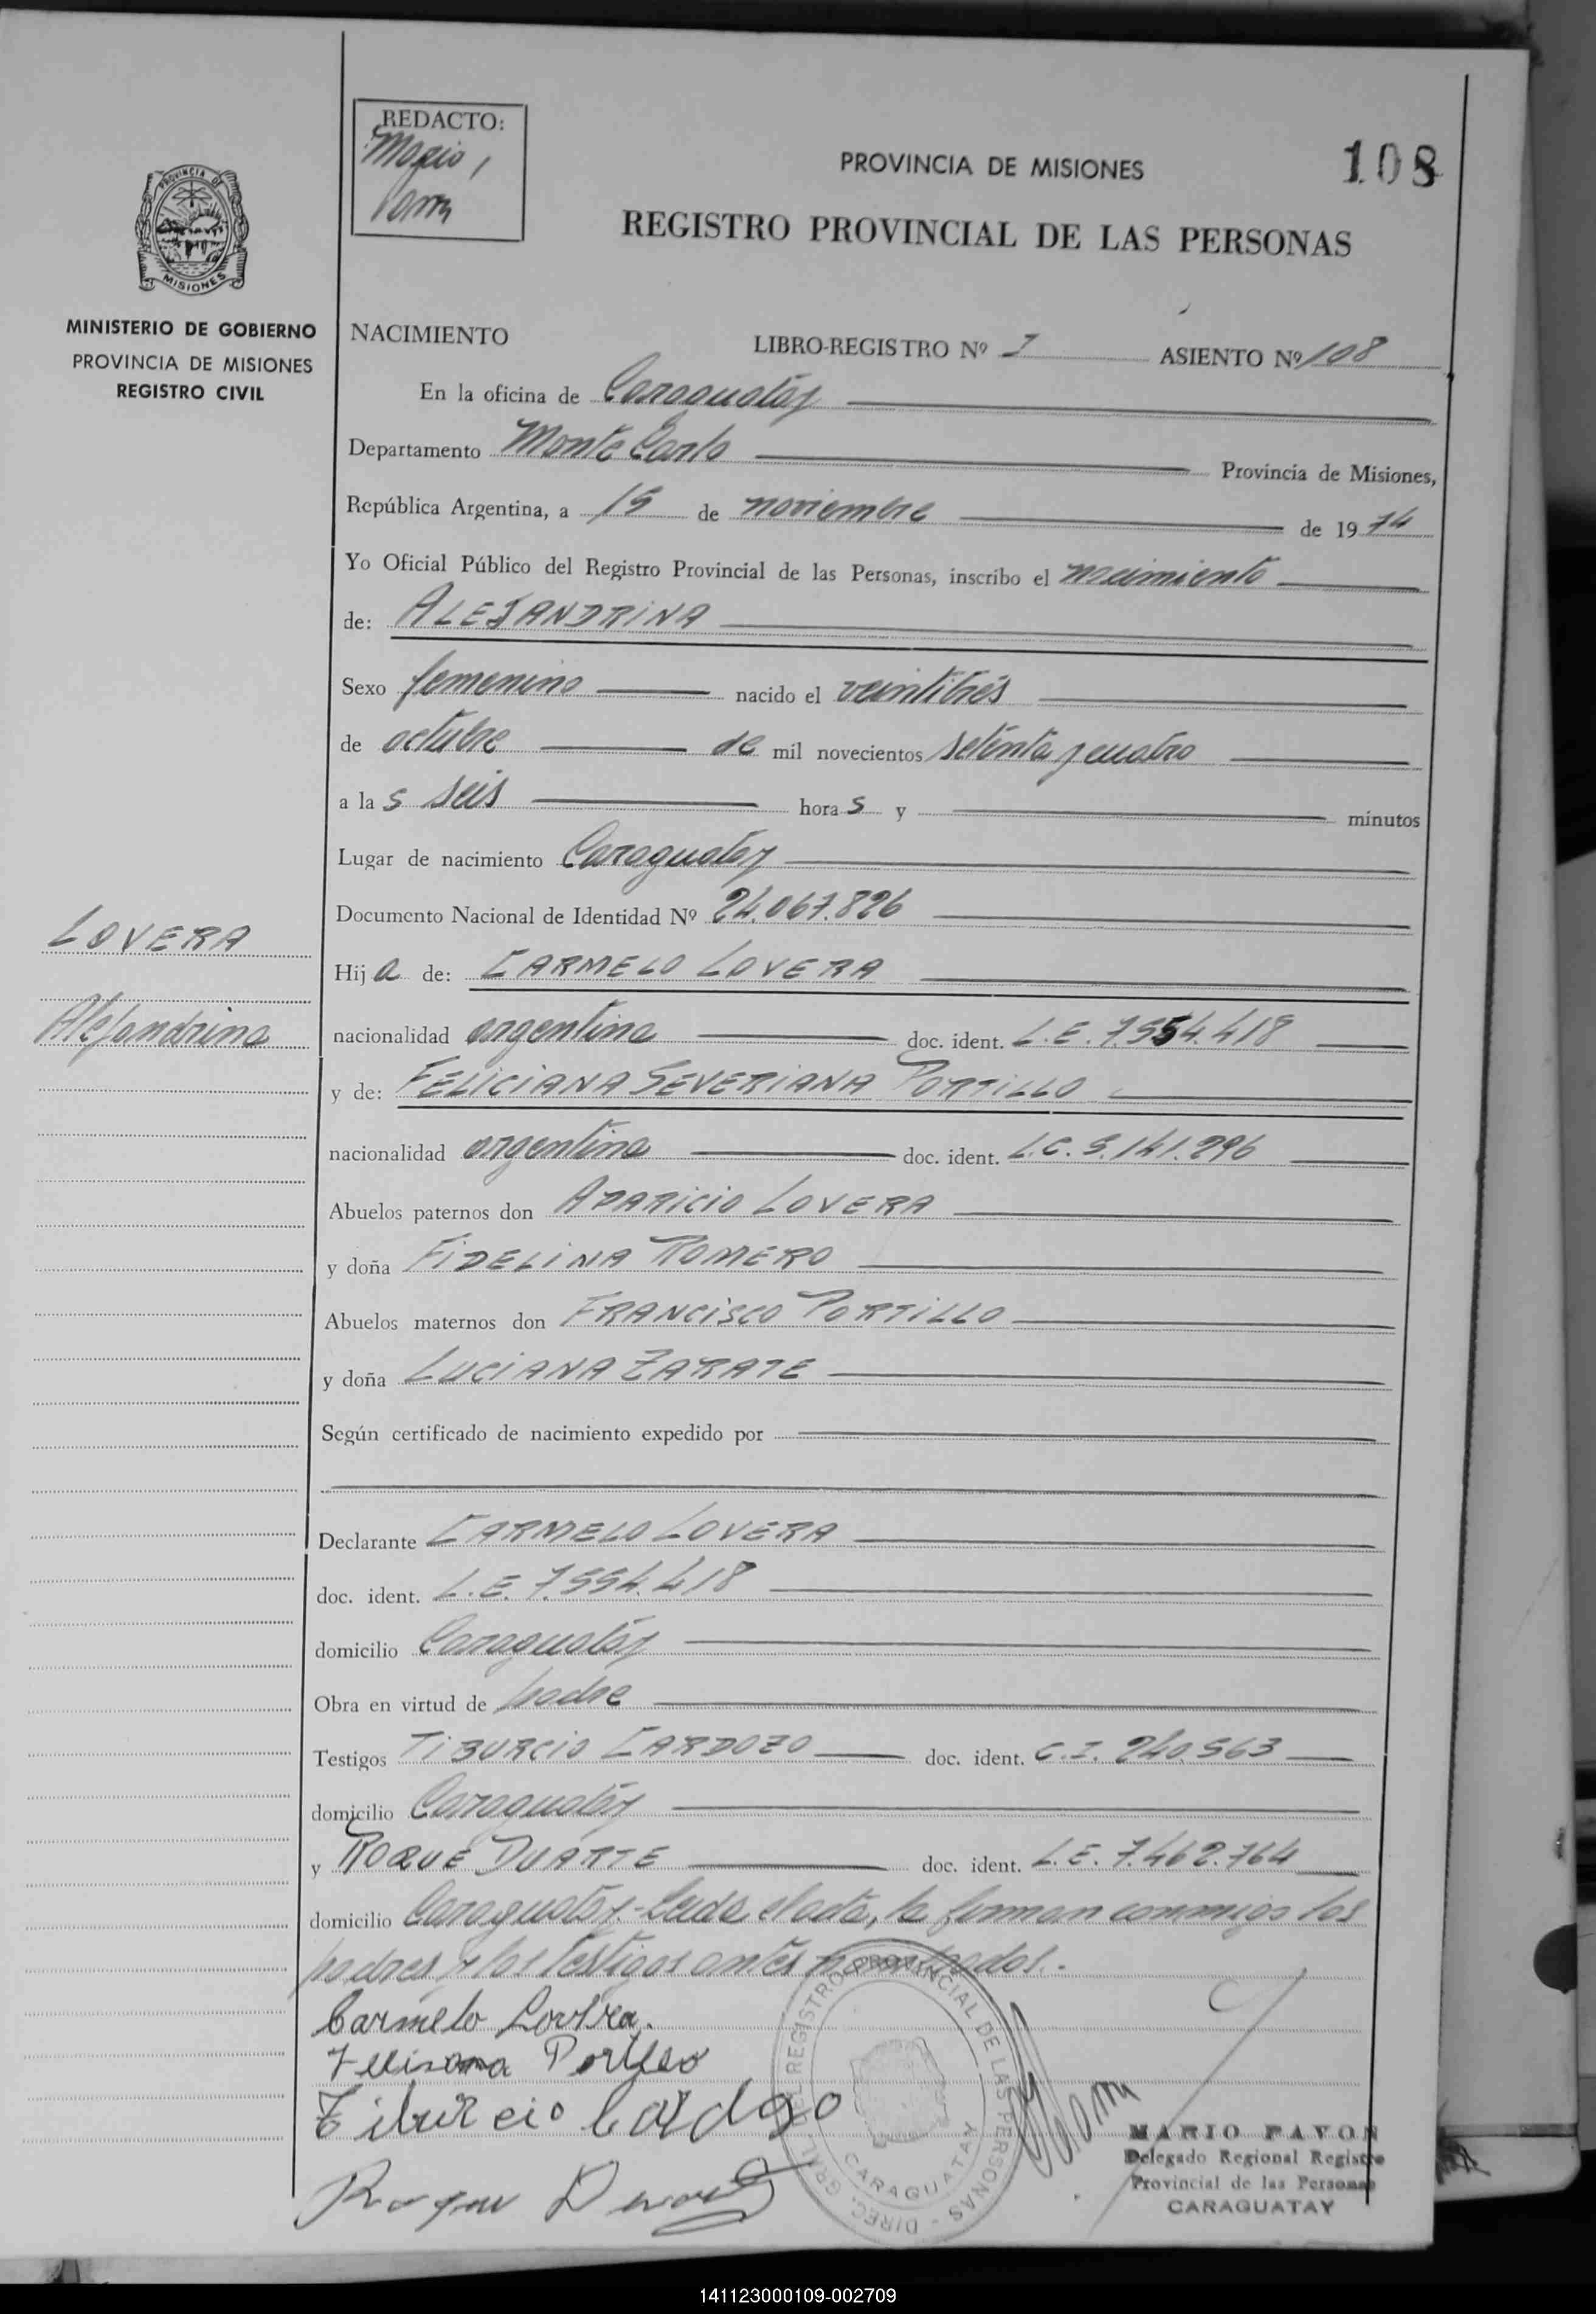 REDACTO:
Mario
108
PROVINCIA DE MISIONES
REGISTRO PROVINCIAL DE LAS PERSONAS
PROVINCIA DE
MISIONES
MINISTERIO DE GOBIERNO
PROVINCIA DE MISIONES
REGISTRO CIVIL
NACIMIENTO LIBRO-REGISTRO Nº I ASIENTO Nº 108
En la oficina de Caraguatay
Departamento Monte Carlo Provincia de Misiones,
República Argentina, a 15 de noviembre de 1974
Yo Oficial Público del Registro Provincial de las Personas, inscribo el nacimiento
de: ALEJANDRINA
Sexo femenino nacido el veintitrés
de octubre de mil novecientos setenta y cuatro
a las seis horas y minutos
Lugar de nacimiento Caraguatay
Documento Nacional de Identidad Nº 24.067.826
LOVERA
Alejandrina
Hija de: CARMELO LOVERA
nacionalidad argentina doc. ident. L.E. 7.554.418
y de: FELICIANA SEVERIANA PORTILLO
nacionalidad argentina doc. ident. L.C. 5.141.296
Abuelos paternos don APARICIO LOVERA
y doña FIDELINA ROMERO
Abuelos maternos don FRANCISCO PORTILLO
y doña LUCIANA ZARATE
Según certificado de nacimiento expedido por
Declarante CARMELO LOVERA
doc. ident. L.E. 7.554.418
domicilio Caraguatay
Obra en virtud de padre
Testigos TIBURCIO CARDOZO doc. ident. C.I. 240.563
domicilio Caraguatay
y ROQUE DUARTE doc. ident. L.E. 7.462.764
domicilio Caraguatay.- Leida el acta, la firman conmigo los
padres y los testigos antes nombrados.-
Carmelo Lovera.
Portillo
Tiburcio Cardozo
Roque Duarte
DIREC. GRAL. DEL REGISTRO PROVINCIAL DE LAS PERSONAS
CARAGUATAY
MARIO PAVON
Delegado Regional Registro
Provincial de las Personas
CARAGUATAY
141123000109-002709